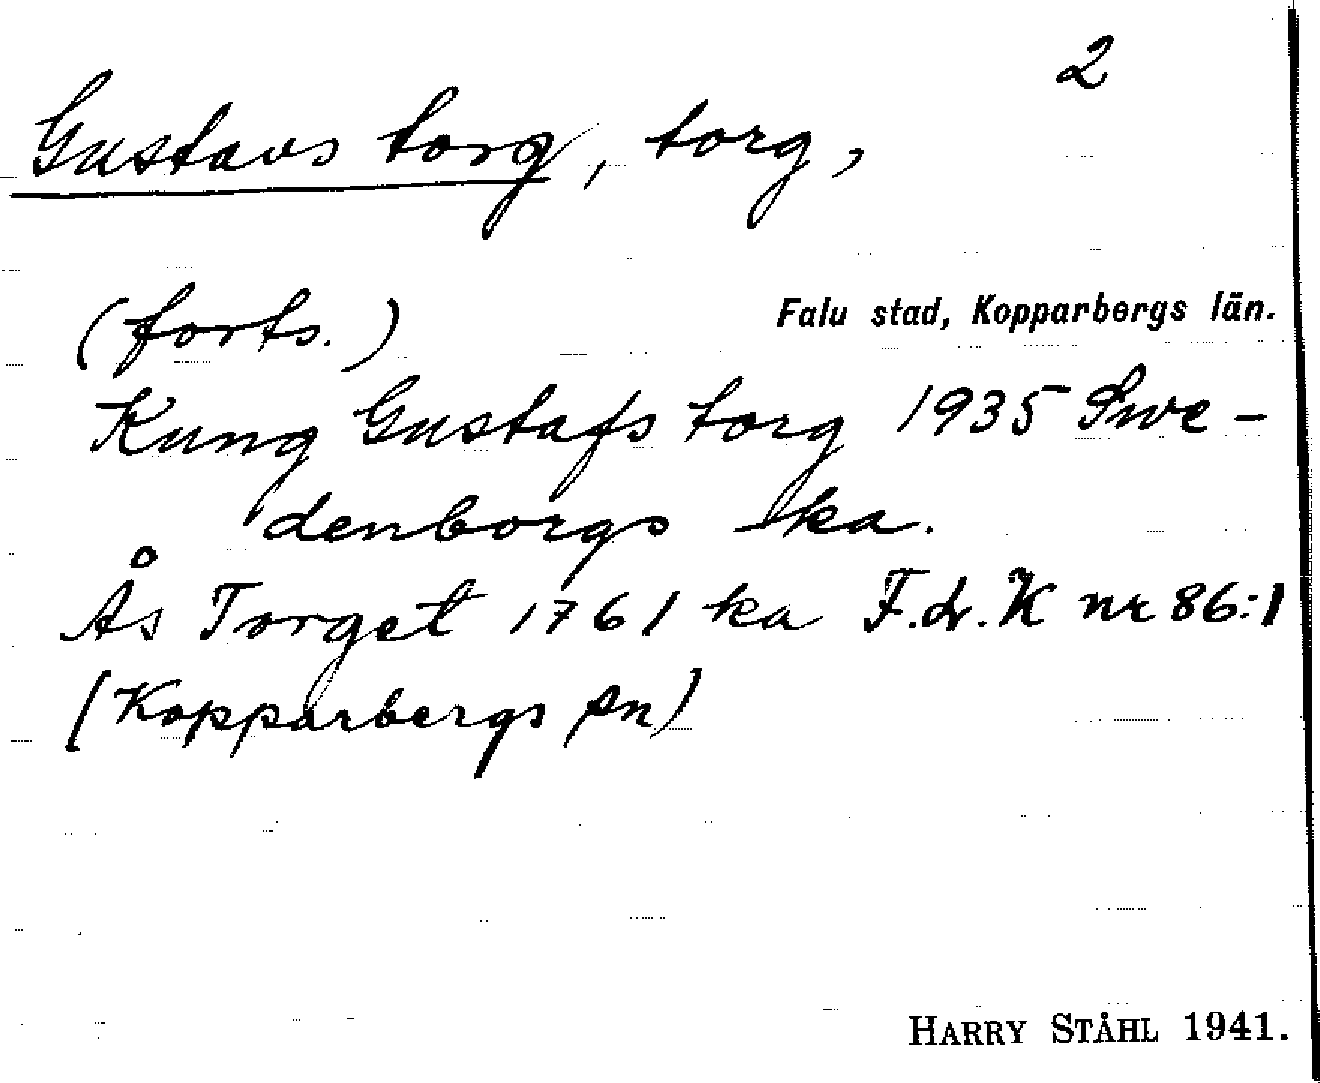 2
Gustavs torg, torg,
(forts.)
Falu stad, Kopparbergs län.
Kung Gustafs torg 1935 Swe-
denborgs ka.
Ås Torget 1761 ka F.dr.K nr 86:1
(Kopparbergs sn)
HARRY STÅHL 1941.